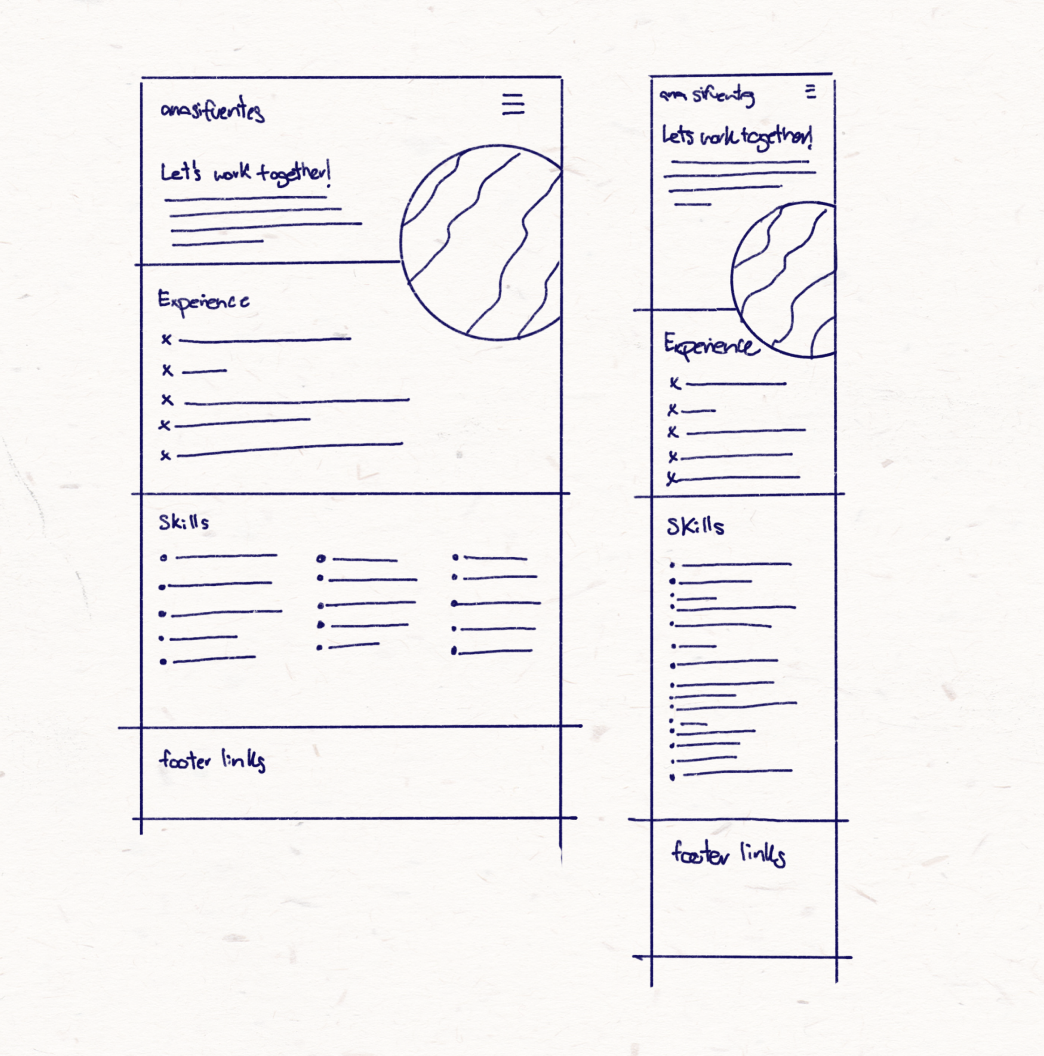 anasifuentes
Let's work together!
Experience
x
x
x
x
x
Skills
footer links
ana sifuentes
Lets work together!
Experience
x
x
x
x
x
Skills
footer links